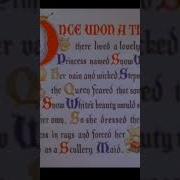 ONCE UPON A TI
there lived a lovely
Princess named Snow W
Her vain and wicked Step
the Queen feared that som
Snow White's beauty would s
her own. So she dressed the
cess in rags and forced her
as a Scullery Maid.